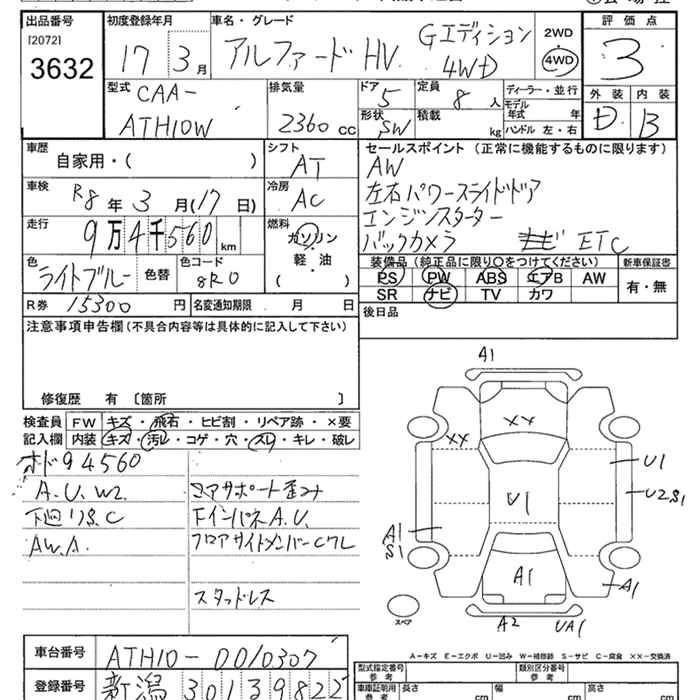 出品番号 初度登録年月 車名・グレード 評価点
[2072]
3632 17年 3月 アルファードHV Gエディション 4WD 2WD 4WD 3
型式 排気量 ドア 定員 ディーラー・並行 外装 内装
CAA- 5 8人 モデル年式 年 D B
ATH10W 2360cc 形状 SW 積載 kg ハンドル 左・右
車歴 シフト セールスポイント (正常に機能するものに限ります)
自家用・( ) AT AW
車検 冷房 左右パワースライドドア
R8年 3月(17日) AC エンジンスターター
走行 燃料 バックカメラ ETC
9万4千560km ガソリン・軽・油 ( )
色 色コード 装備品 (純正品に限り〇をつけてください) 新車保証書
ライトブルー 色替 8R0 PS PW ABS エアB AW 有・無
SR ナビ TV カワ
R券 15300円 名変通知期限 月 日 後日品
注意事項申告欄 (不具合内容等は具体的に記入して下さい)
修復歴 有 〔箇所 〕
検査員 FW キズ・飛石・ヒビ割・リペア跡・×要
記入欄 内装 キズ・汚レ・コゲ・穴・スレ・キレ・破レ
オド94560
A.U.W2. コアサポート歪ミ
下廻りS.C 下インパネA.U.
AW.A. フロアサイドメンバーC穴
スタッドレス
A1
XX
XX
U1
U1
U2S1
A1
S1
A1
A1
A2
UA1
スペア
A-キズ E-エクボ U-凹み W-補修跡 S-サビ C-腐食 XX-交換済
車台番号 ATH10-0010307 型式指定番号 参考 類別区分番号 参考
登録番号 新潟 301 3 9822 車庫証明用 参考 長さ cm 幅 cm 高さ cm